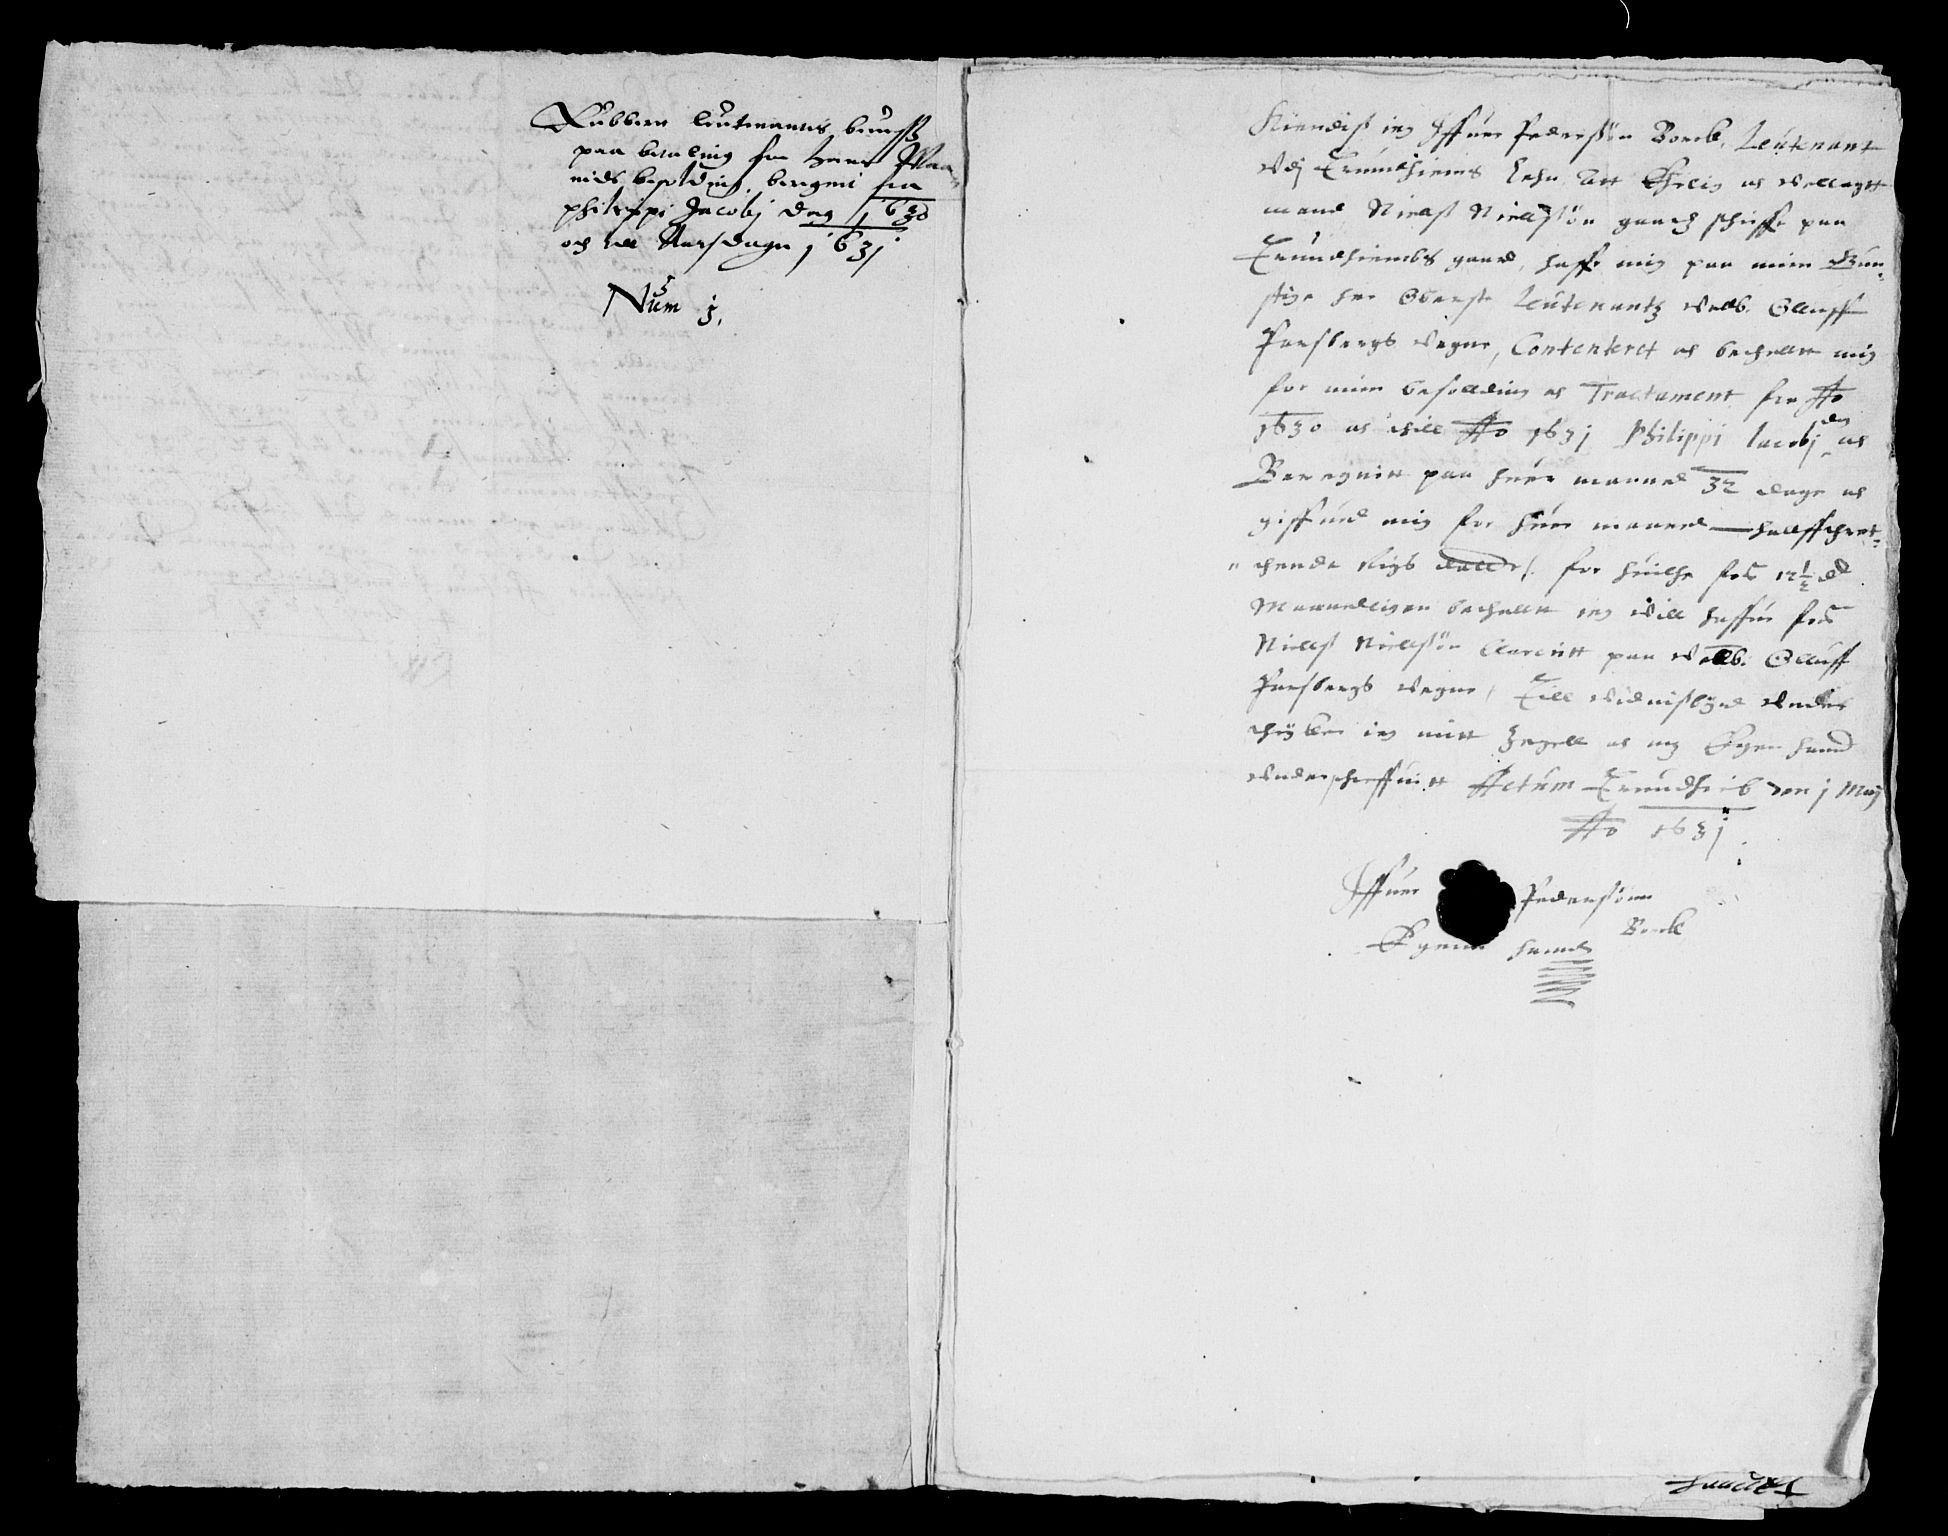 Rubbern leutenantes beuiss
paa betaling for hans Maa-
nids besolding beregnit fra
philippi Jacobj dag 1630
och till Aarsdagen 1631
Num 3.
Kiendis ieg Iffuer Pederssøn Borck, Leutenant
vdj Trundhiems Lehn Att Ehrlig oc wellagtt
mand Niels Nielssøn paa
Trundhiembs gaard, haffr mig paa min Gun-
stige her Oberste Leutenantz welb. Olluff
Parsbergs wegne, Contenteret oc bethallt mig
for min besolding oc Tractament fra Ao
1630 oc thill Ao 1631 Philippi Iacobj dag oc
Beregnitt paa huer maaned 32 dage oc
giffued mig for huer maaned halffthret-
thende Rigs daller, for huilche for 12½ dr
Maanedligen bethallt ieg will haffue for
Niels Nielssøn quitt paa welb. Olluff
Parsbergs wegne, Till widnisbyrd wnder
thrÿker ieg mitt Zegell oc mz Egen haand
wnderschreffuitt Actum Trundhieb den j Maij
Ao 1631
Iffuer Pederssøn
Borck
Egenn haand